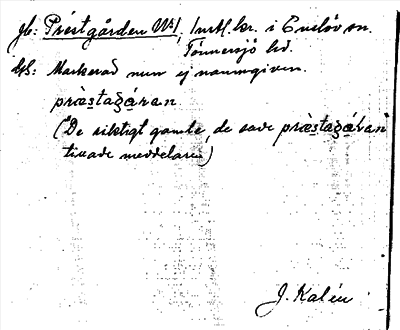 jb: Prästgården №1, Inutl. kr. i Enslöv sn.
Tönnersjö hd.
bf: Markerad men ej namngiven.
præstagáran
("De riktigt gamle, de sade præstagávan"
tillade meddelaren)
J. Kalén